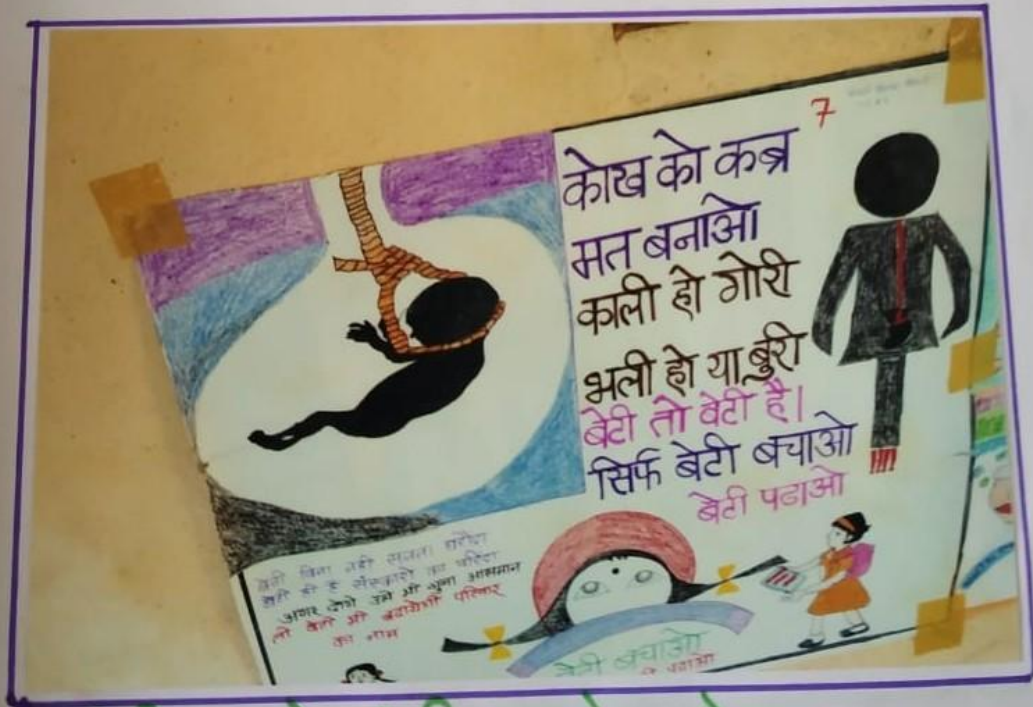 7
कोख को कब्र
मत बनाओ
काली हो गोरी
भली हो या बुरी
बेटी तो बेटी है।
सिर्फ बेटी बचाओ
बेटी पढाओ
बेटी बिना नही सजता घरौंदा
बेटी ही है संस्कारो का परिंदा
अगर दोगे उसे भी खुला आसमान
तो बेटी भी बढायेगी परिवार
का नाम
बेटी बचाओ
पढाओ